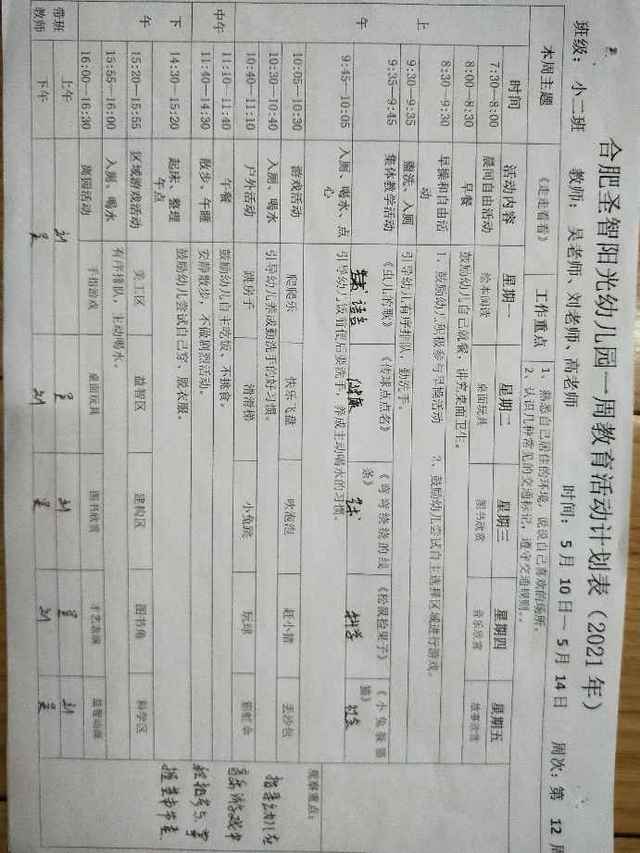 合肥圣智阳光幼儿园一周教育活动计划表（2021 年）
班级： 小二班 教师：吴老师、刘老师、高老师 时间： 5 月 10 日—5 月 14 日 周次：第 12 周
本周主题 《走走看看》 工作重点 1、熟悉自己居住的环境，说说自己喜欢的场所。
2、认识几种常见的交通标记，遵守交通规则。
时间 活动内容 星期一 星期二 星期三 星期四 星期五
上午
7:30—8:00 晨间自由活动 绘本阅读 桌面玩具 图书欣赏 音乐欣赏 故事欣赏
8:00—8:30 早餐 鼓励幼儿自己就餐，讲究桌面卫生。
8:30—9:30 早操和自由活动 1、鼓励幼儿积极参与早操活动 2、鼓励幼儿尝试自主选择区域进行游戏。
9:30—9:35 盥洗、入厕 引导幼儿有序排队、勤洗手。
9:35—9:45 集体教学活动 《虫儿的歌》 《传球点点名》 《弯弯绕绕的线条》 《松鼠捡果子》 《小兔躲猫猫》
语言 健康 艺术 科学 社会
9:45—10:05 入厕、喝水、点心 引导幼儿饭前便后要洗手，养成主动喝水的习惯。
10:05—10:30 游戏活动 爬爬乐 快乐飞盘 吹泡泡 赶小猪 丢沙包
10:30—10:40 入厕、喝水 引导幼儿养成勤洗手的好习惯。
10:40—11:10 户外活动 跳房子 滑滑梯 小兔跳 玩球
中午
11:10—11:40 午餐 鼓励幼儿自主吃饭、不挑食。
11:40—14:30 散步、午睡 安静散步，不做剧烈活动。
下午
14:30—15:20 起床、整理 午点 鼓励幼儿尝试自己穿、脱衣服。
15:20—15:55 区域游戏活动 美工区 益智区 建构区 图书角 科学区
15:55—16:00 入厕、喝水 有序排队，主动喝水。
16:00—16:30 离园活动 手指游戏 桌面玩具 图书欣赏 才艺表演
带班教师 上午 刘 吴 刘 吴 刘
下午 吴 刘 吴 刘 吴
观察重点：
指导幼儿在
音乐游戏中